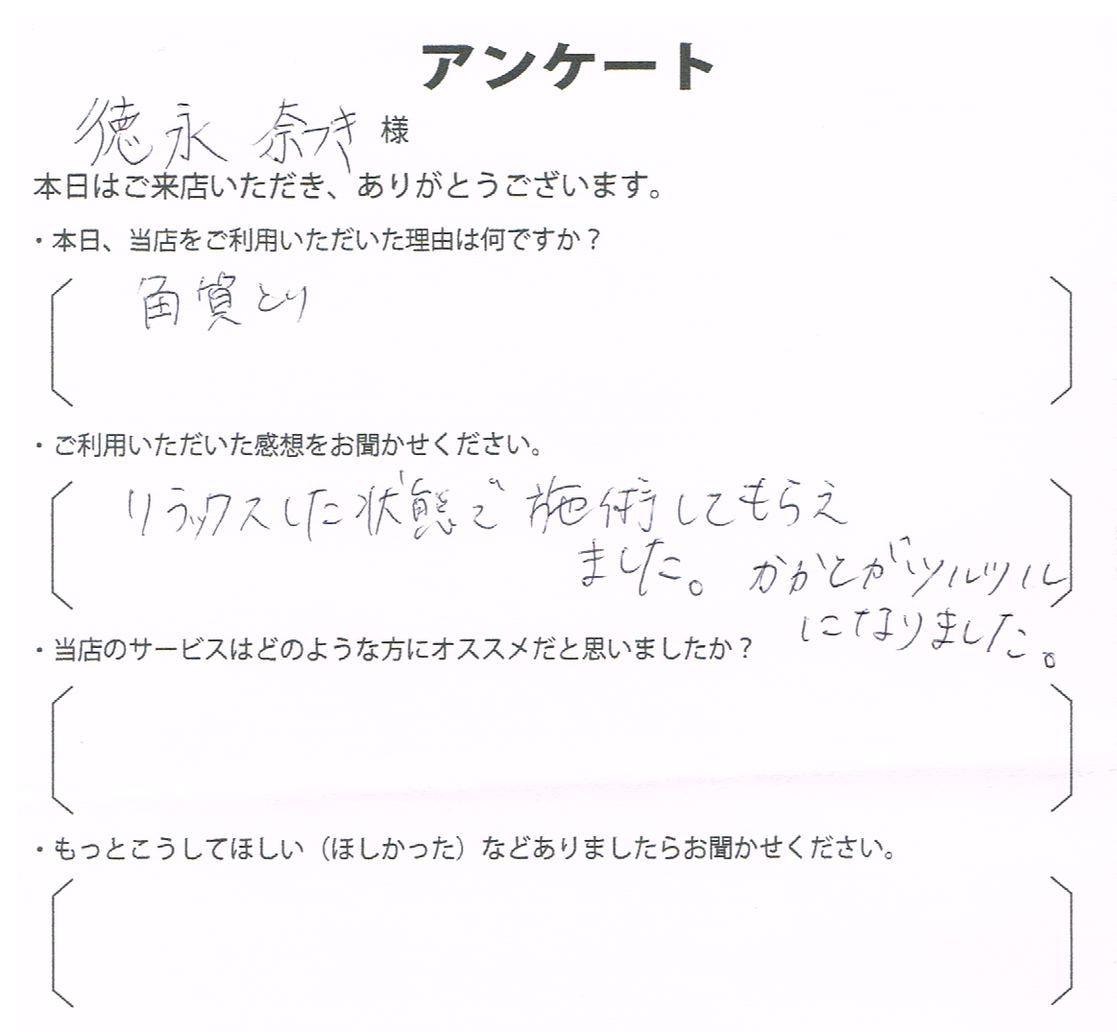 アンケート
徳永 奈つき 様
本日はご来店いただき、ありがとうございます。
・本日、当店をご利用いただいた理由は何ですか？
角質とり
・ご利用いただいた感想をお聞かせください。
リラックスした状態で施術してもらえ
ました。かかとがツルツル
になりました。
・当店のサービスはどのような方にオススメだと思いましたか？
・もっとこうしてほしい（ほしかった）などありましたらお聞かせください。